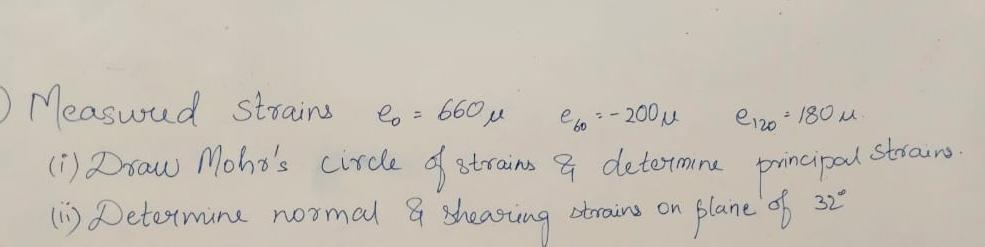 ) Measured strains e₀ = 660 μ e₆₀ = - 200 μ e₁₂₀ = 180 μ.
(i) Draw Mohr's circle of strains & determine principal strains.
(ii) Determine normal & shearing strains on plane of 32°